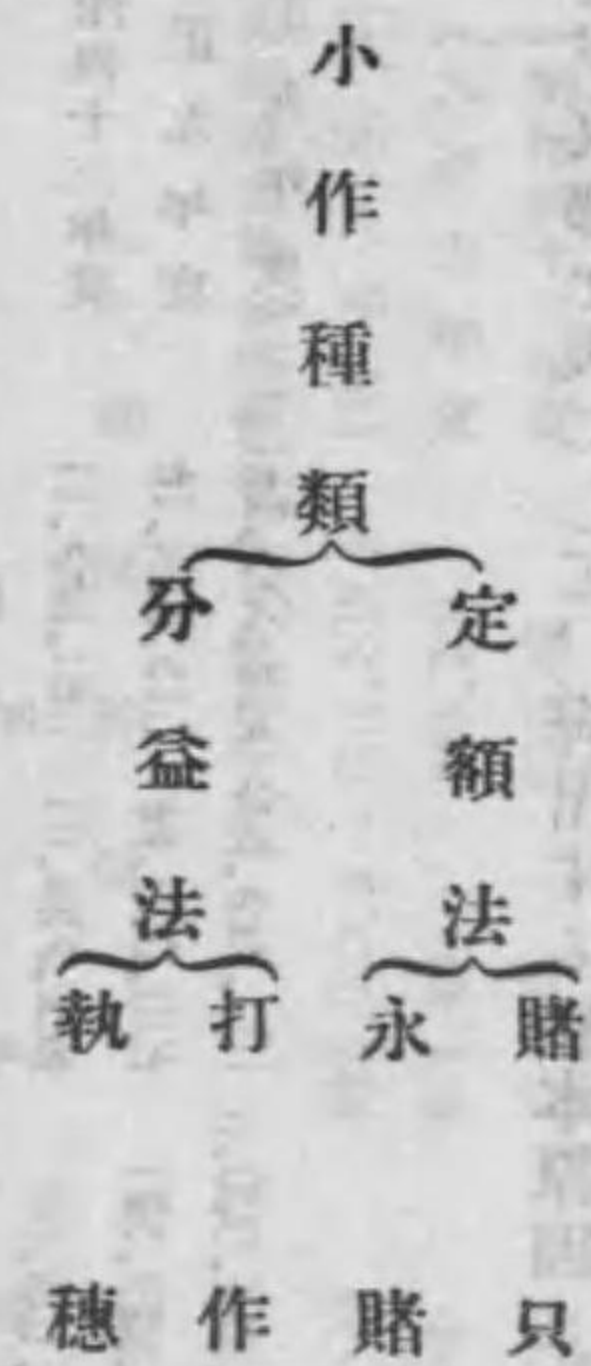 小作種類
定額法
賭只
永賭
分益法
打作
執穗